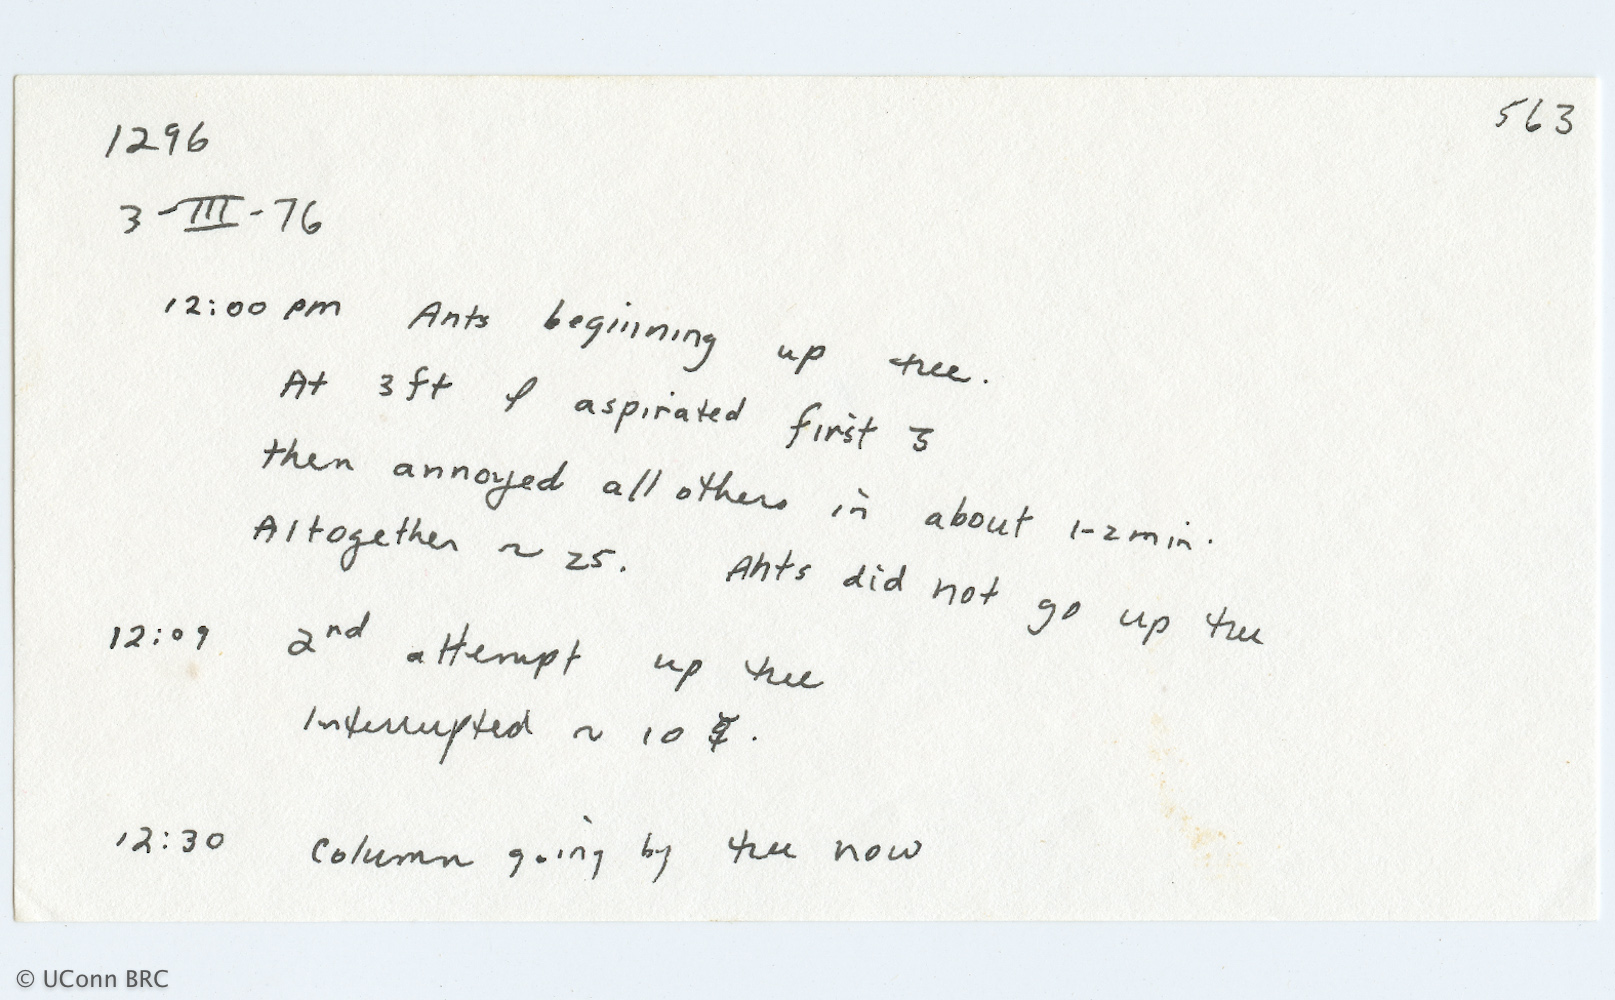 563
1296
3-III-76
12:00 pm Ants beginning up tree.
At 3 ft I aspirated first 3
then annoyed all others in about 1-2 min.
Altogether ~ 25. Ants did not go up tree
12:09 2nd attempt up tree
Interrupted ~ 10 .
12:30 Column going by tree now
© UConn BRC